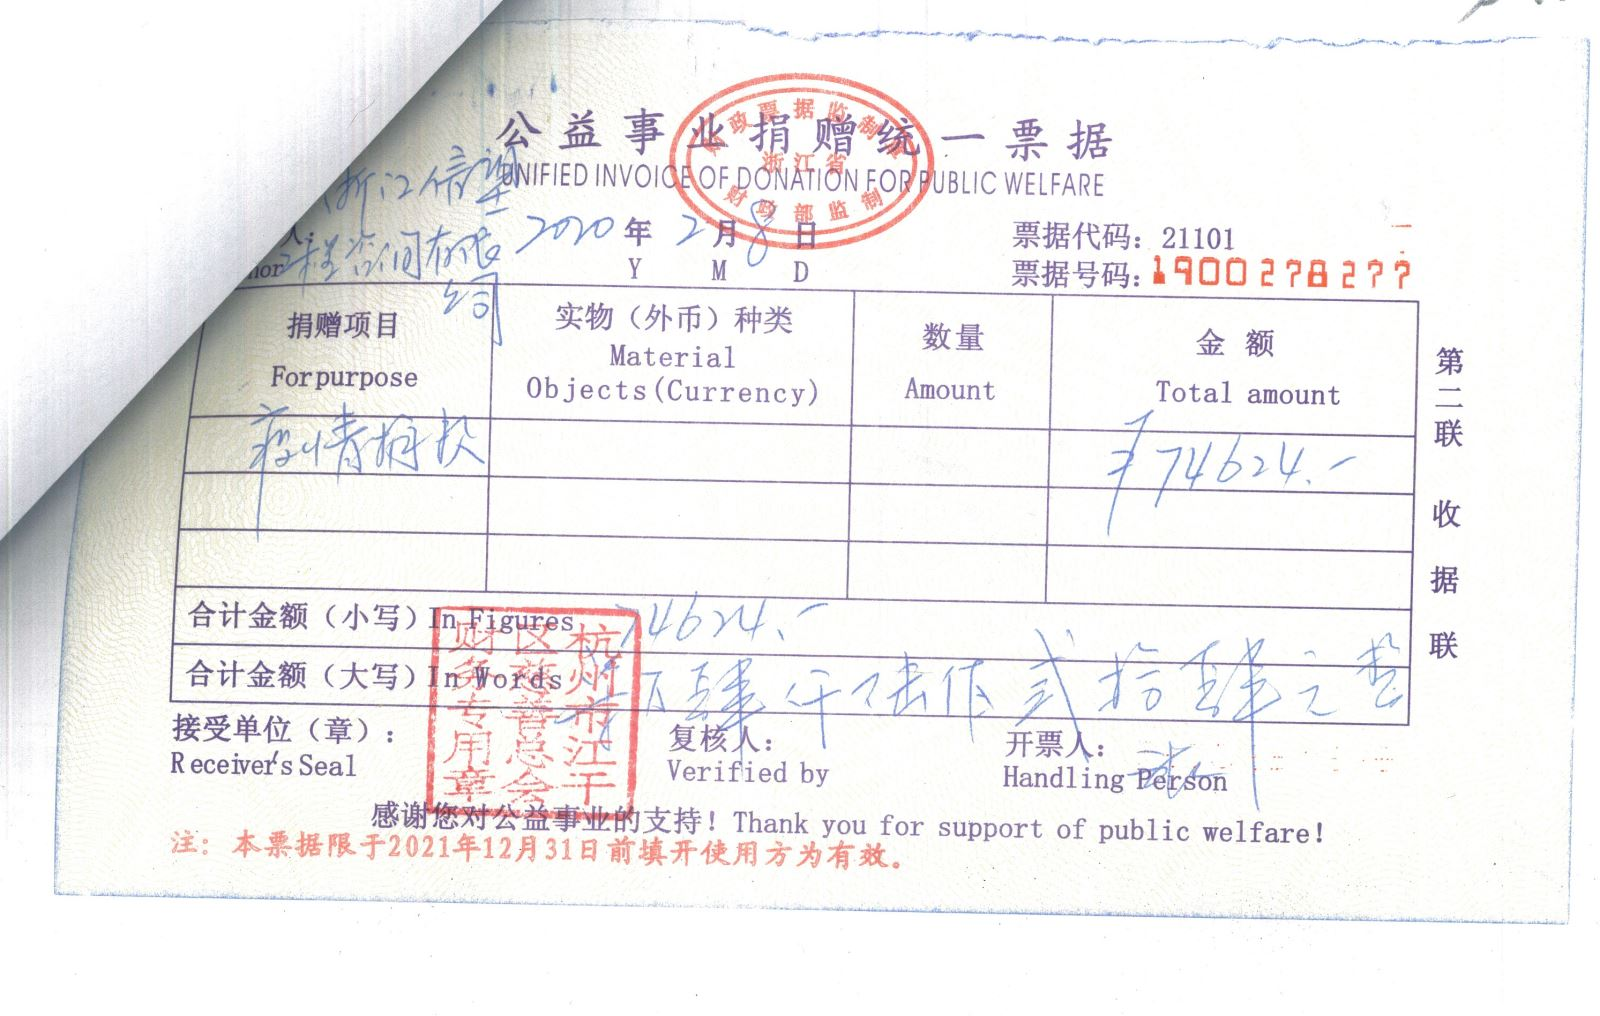 公益事业捐赠统一票据
UNIFIED INVOICE OF DONATION FOR PUBLIC WELFARE
财政票据监制章
浙江省
财政部监制
浙江信望
工程咨询有限
公司
人:
nor
2020 年 2 月 8 日
Y M D
票据代码: 21101
票据号码: 1900278277
捐赠项目 实物（外币）种类 数量 金 额
For purpose Material Objects(Currency) Amount Total amount
疫情捐款 ¥74624.-
合计金额（小写）In Figures 74624.-
合计金额（大写）In Words 柒万肆仟陆佰贰拾肆元整
杭州市江干区慈善总会财务专用章
接受单位（章）: 复核人: 开票人:
Receiver's Seal Verified by Handling Person
感谢您对公益事业的支持! Thank you for support of public welfare!
注: 本票据限于2021年12月31日前填开使用方为有效。
第二联 收据联